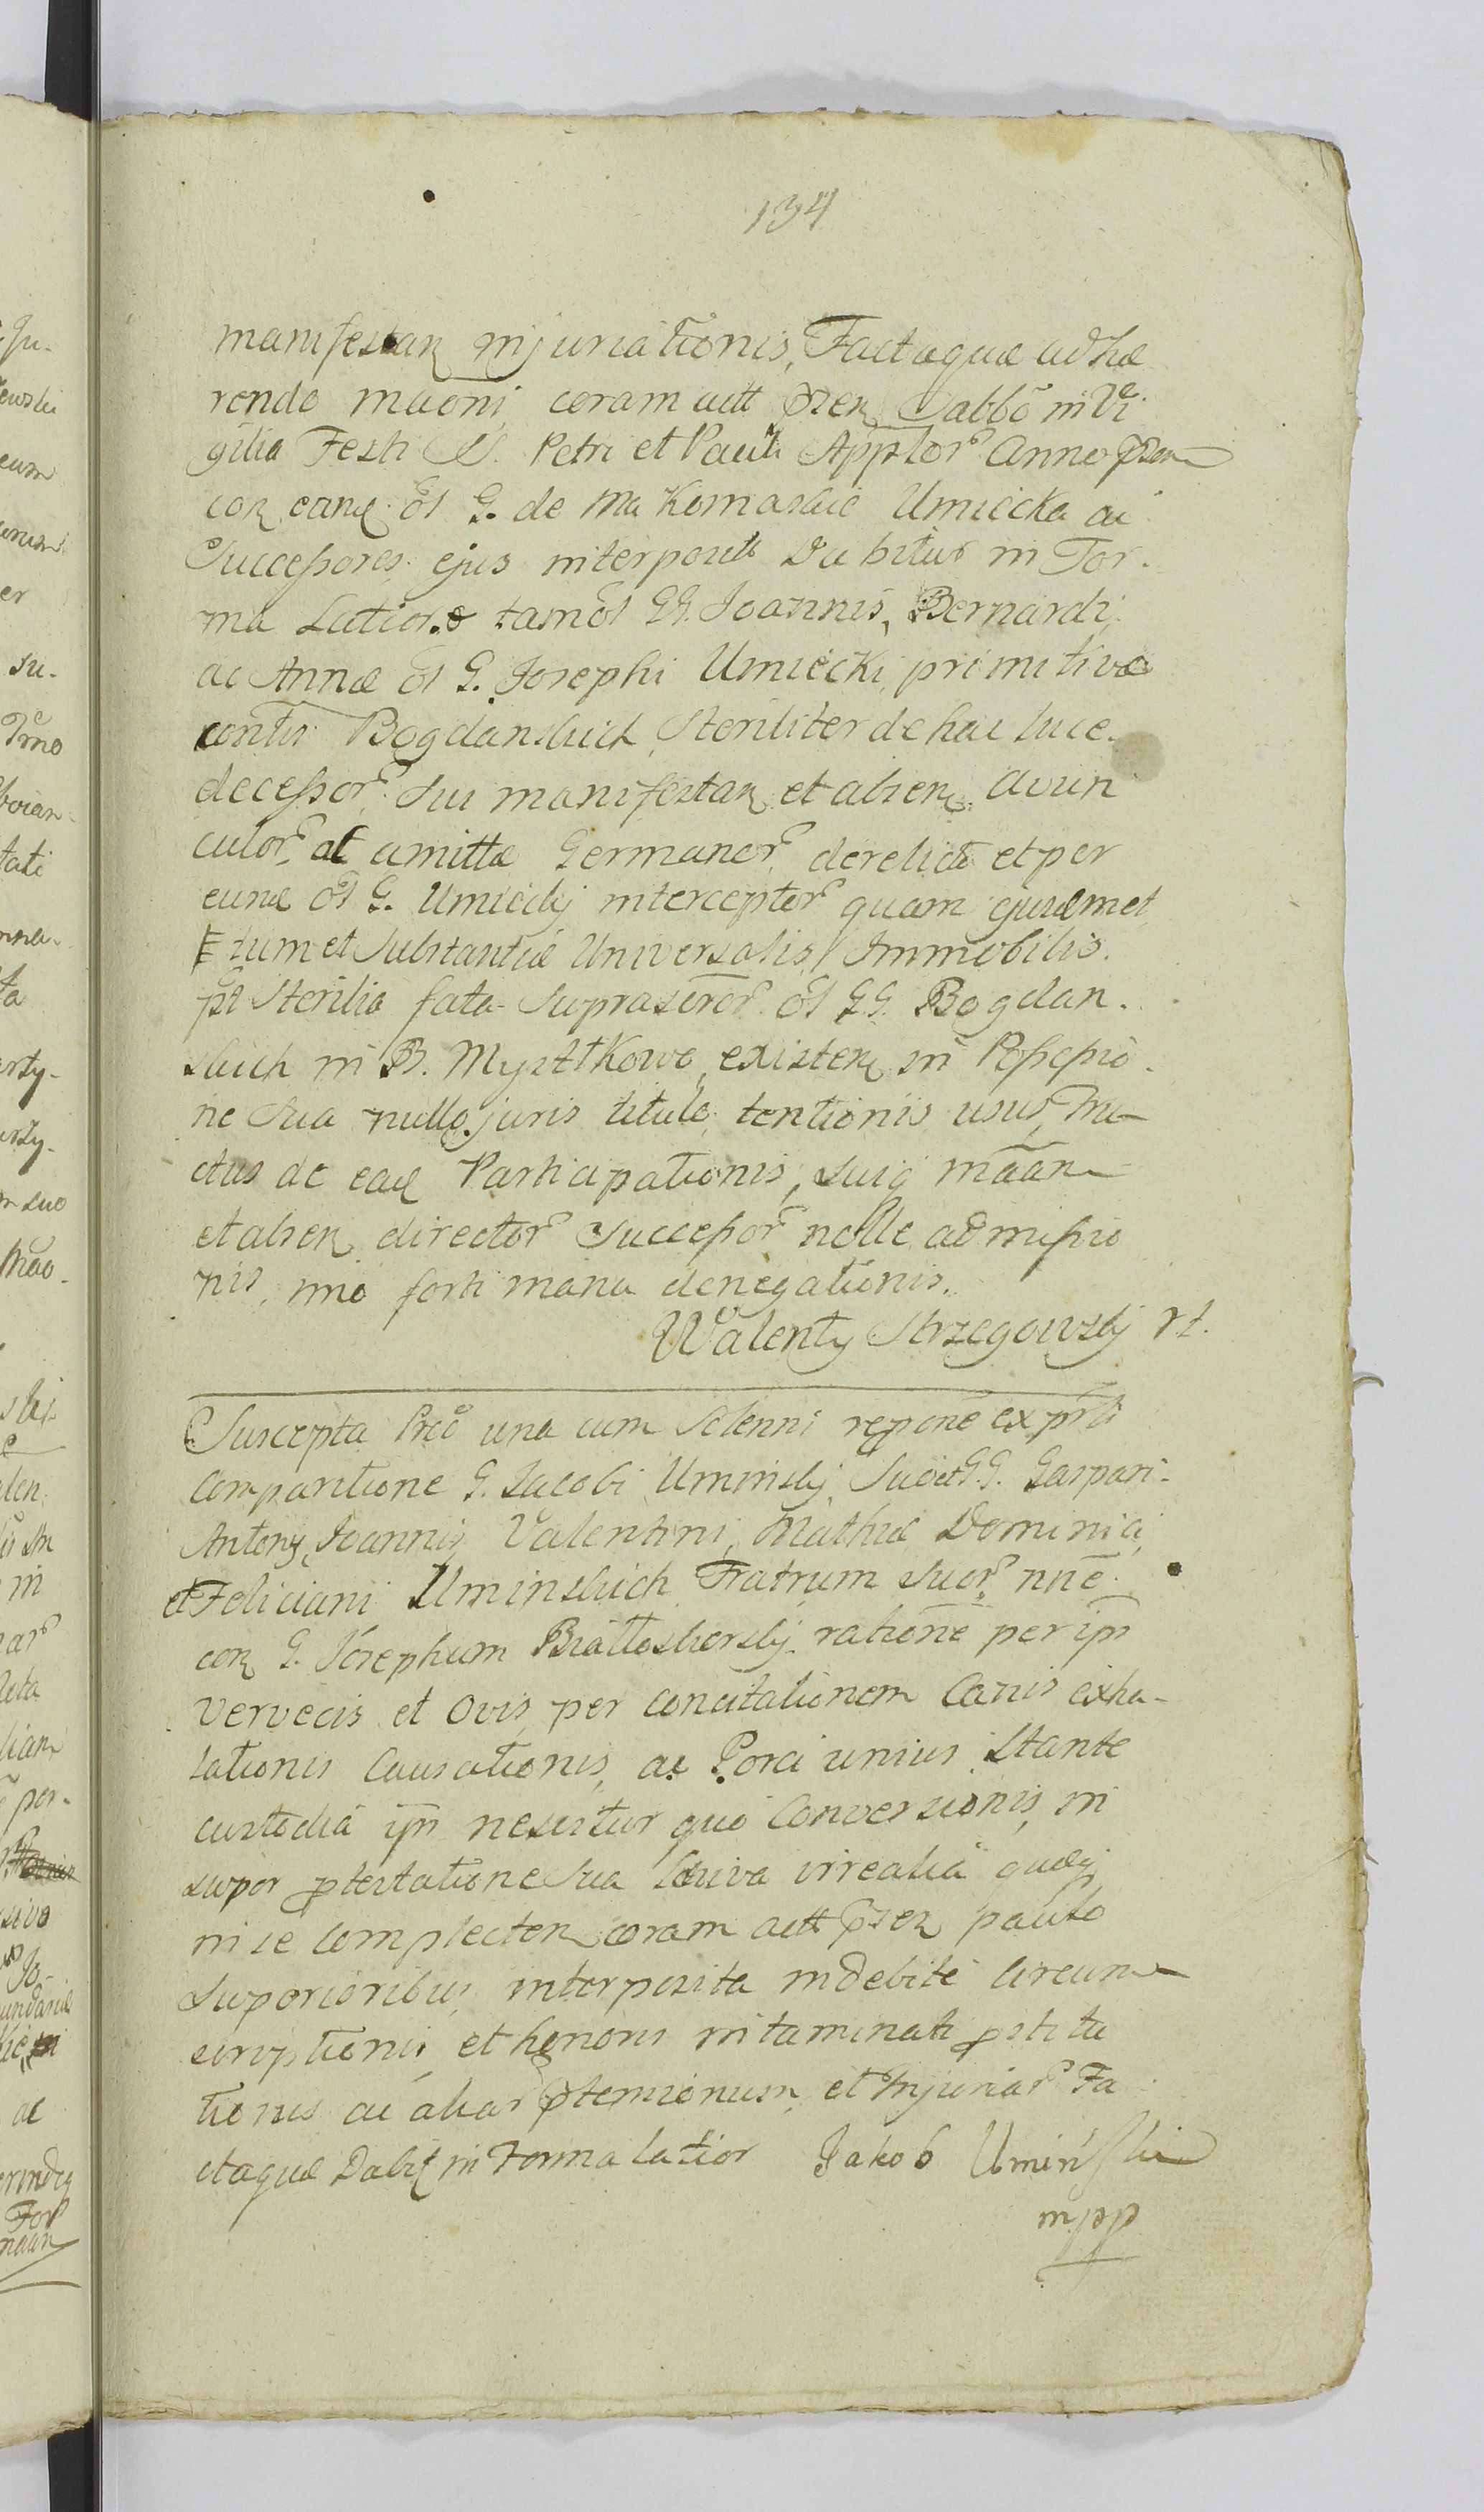 134
manifestan injuriationis, Factaque adhæ
rendo maoni coram actt pren Sabbo in Vi
gilia Festi S. Petri et Pauli Applor Anno pren
con eand ol G. de Makomaskie Umiecka ac
Successores ejus interposit Dabitur in For.
ma Latiore tam ol GG. Joannis, Bernardi,
ac Annæ ol G. Josephi Umiecki primitivæ
contis Bogdanskich Steriliter de hac luce
decessor sui manifestan et alien avun
culor ac amittæ Germanor derelict et per
eund ol G. Umiecky interceptor quam ejusdmet
tum et Substantiæ Universalis Immobilis.
pt Sterilia fata suprascror ol GG. Bogdan.
skich in B. Mysztkowo existen in Possessio.
ne sua nullo juris titulo tentionis usus, fru
ctus de ead Participationis, suiq maan
et alien director Successor nolle admissio
nis, imo forti manu denegationis.
Walenty Strzegowsky
Suscepta Prco una cum Solenni repone ex prti
Comparitione G. Jacobi Uminsky Suo et GG. Gaspari.
Antony, Joannis Valentini, Mathiæ Dominici,
et Feliciani Uminskich Fratrum suor nne
con G. Josephum Białłoskorsky ratione per ipn
Vervecis et Ovis per Concitationem Canis exha-
lationis Causationis, ac Porci unius Stante
custodia ipn nescitur quo Conversionis, in
super ptestatione sua irrealia quæq
in se Complecten coram actt pren paulo
superioribus interposita indebite Circum
scriptionis et honoris intaminati pstitu
tionis ac aliar ptensionum et Injuriar Fa
ctaque Dabit in Forma latior Jakob Uminski
mpp